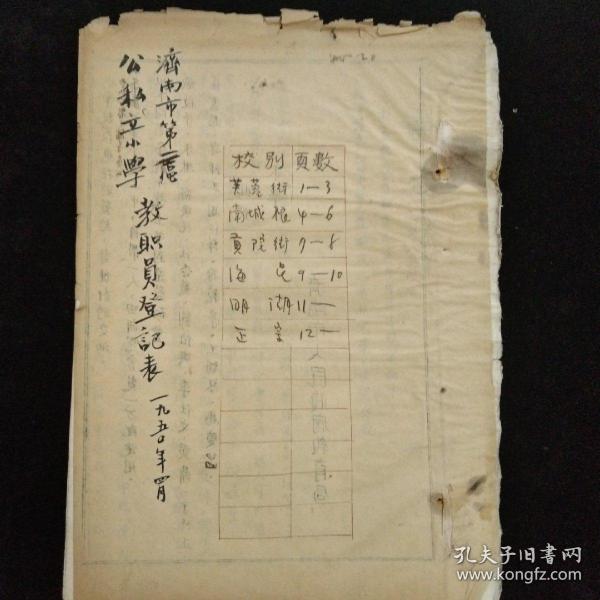 濟南市第二區
公私立小學
教職員登記表
一九五〇年四月
校別 頁數
芙蓉街 1—3
南城根 4—6
貢院街 7—8
海 9—10
明湖 11—
正宗 12—
孔夫子旧书网
www.kongfz.com